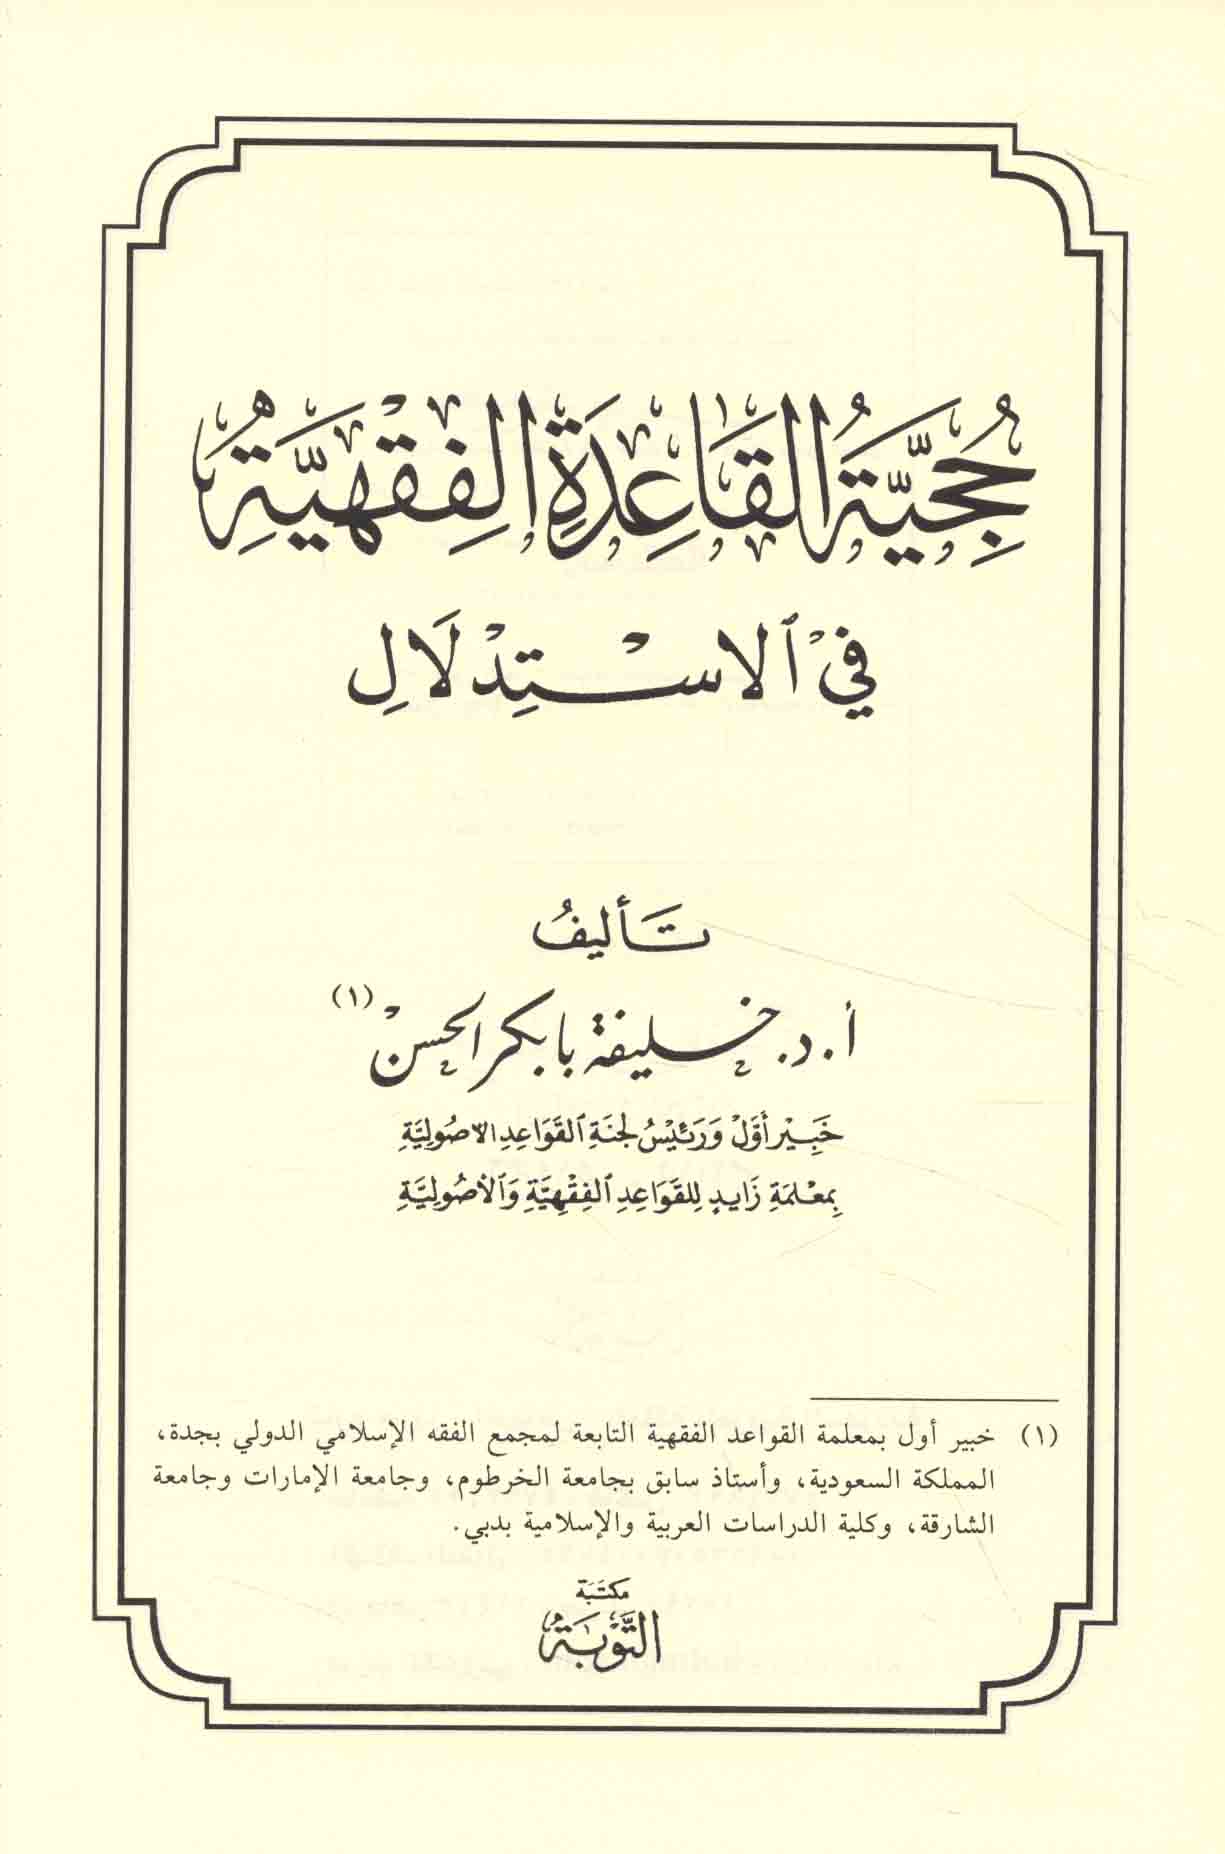 حُجِّيَّةُ القَاعِدَةِ الفِقْهِيَّةِ
فِي الاسْتِدْلَالِ
تَأليفُ
أ.د. خليفة بابكر الحسن (١)
خَبِيْر أَوَّلْ وَرَئِيْسُ لجنَةِ القَوَاعِدِ الأصُولِيَّةِ
بمَعْلَمَةِ زَايدٍ لِلقَوَاعِدِ الفِقْهِيَّةِ وَالأصُولِيَّةِ
(١) خبير أول بمعلمة القواعد الفقهية التابعة لمجمع الفقه الإسلامي الدولي بجدة،
المملكة السعودية، وأستاذ سابق بجامعة الخرطوم، وجامعة الإمارات وجامعة
الشارقة، وكلية الدراسات العربية والإسلامية بدبي.
مكتَبَة
التَّوبَة